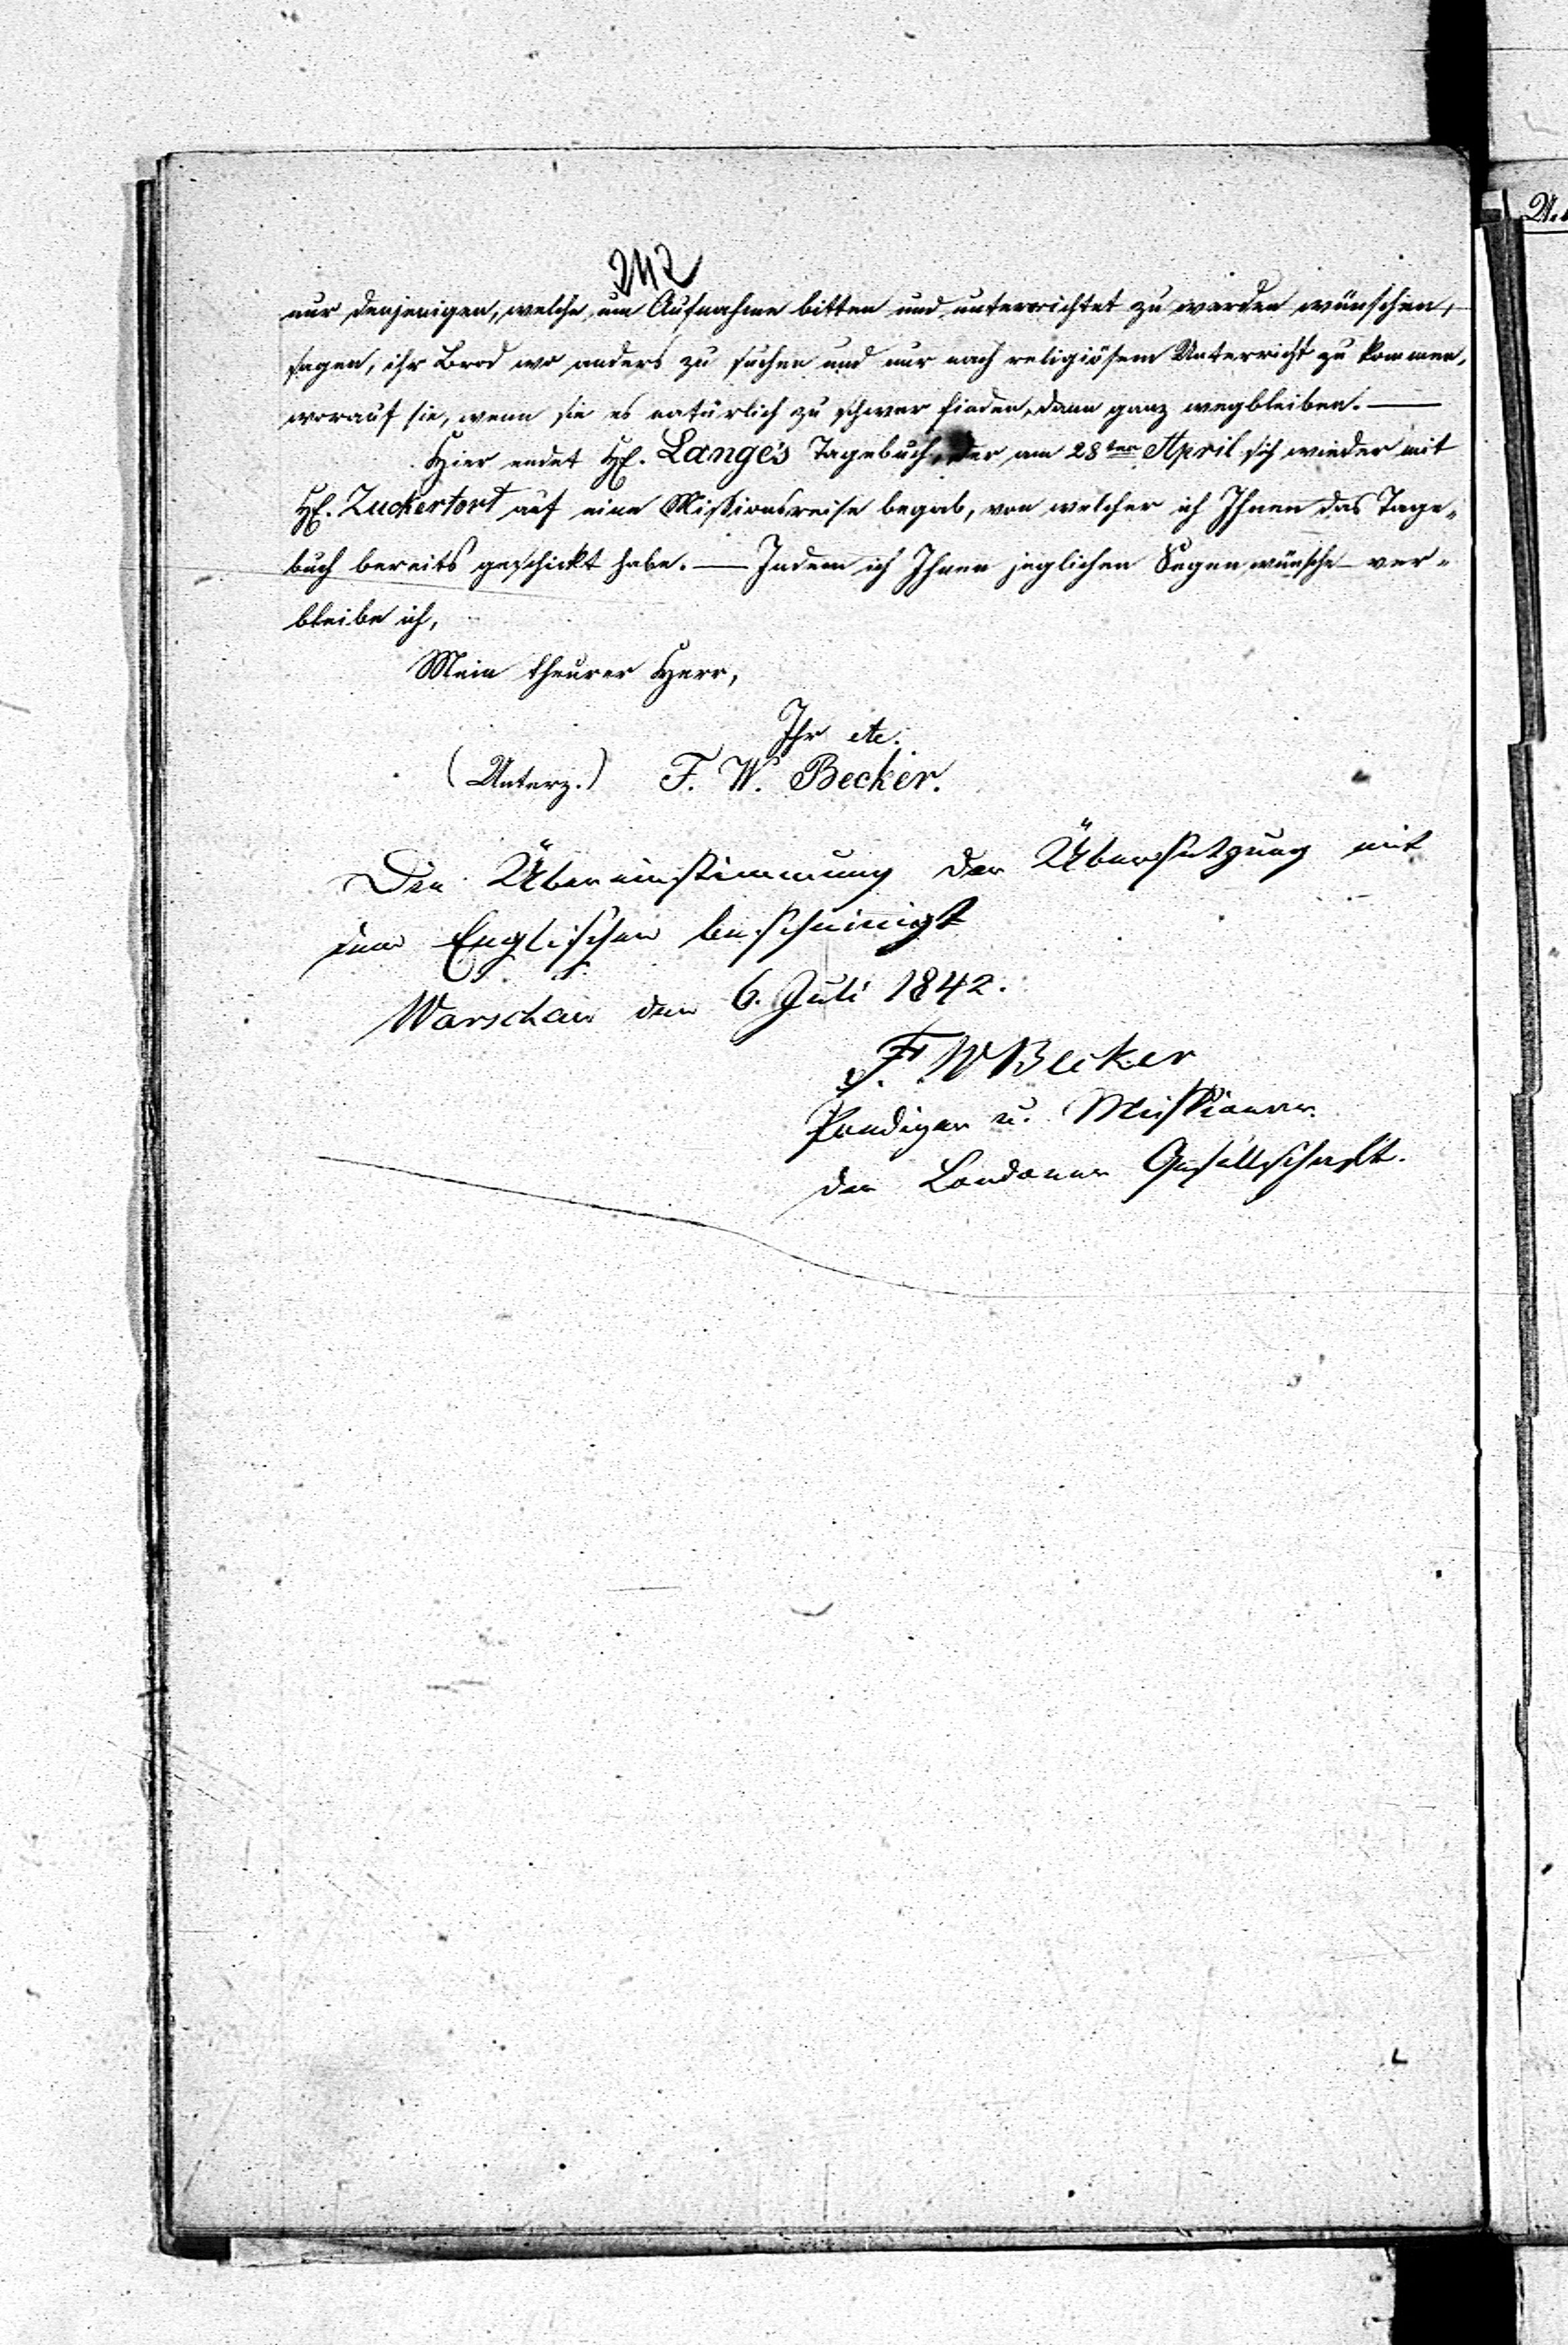 242
nur denjenigen, welche um Aufnahme bitten und unterrichtet zu werden wünschen,
sagen, ihr Brod wo anders zu suchen und nur nach religiösem Unterricht zu kommen,
worauf sie, wenn sie es natürlich zu schwer finden, dann ganz wegbleiben. —
Hier endet H. Lange's Tagebuch, der am 28ten April sich wieder mit
H. Zuckertort auf eine Missionsreise begab, von welcher ich Ihnen das Tage-
buch bereits geschickt habe. — Indem ich Ihnen jeglichen Segen wünsche ver-
bleibe ich,
Mein theurer Herr,
Ihr etc.
(Unterz.) F. W. Becker.
Die Übereinstimmung der Übersetzung mit
dem Englischen bescheinigt
Warschau den 6. Juli 1842.
F. W Becker
Prediger u. Missionar
der Londoner Gesellschaft.